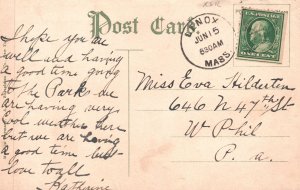 Post Card
LENOX
JUN 15
630AM
MASS.
I hope you are
well and having
a good time going
to the Parks. We
are having very
cool weather here
but we are having
a good time. best
love to all
Katherine
Miss Eva Hilderten
646 N 47th St
W Phil
P. a.